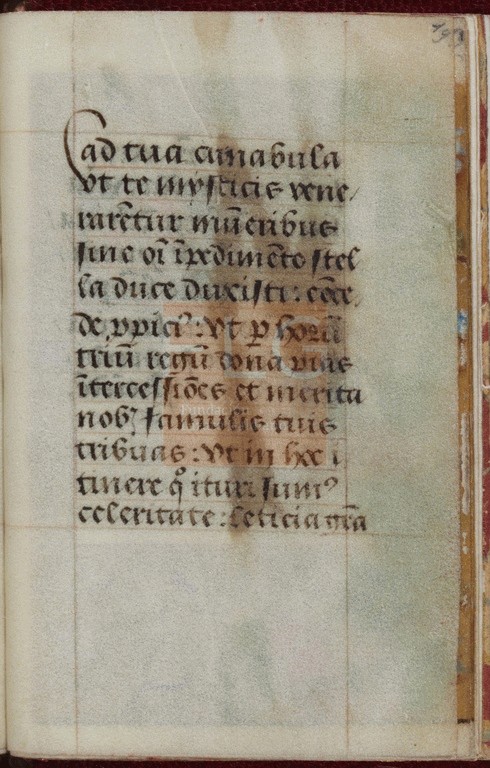 ad tua cunabula
vt te mysticis vene/
rarētur mūeribus
sine oī īpedimēto stel
la duce duxisti: cōce
de ꝓpici⁹: vt ꝑ horū
triū regū dona pias
ītercessiōes et merita
nobꝫ famulis tuis
tribuas: vt in hoc i
tinere q̊ ituri sum⁹
celeritate: leticia gr̄a